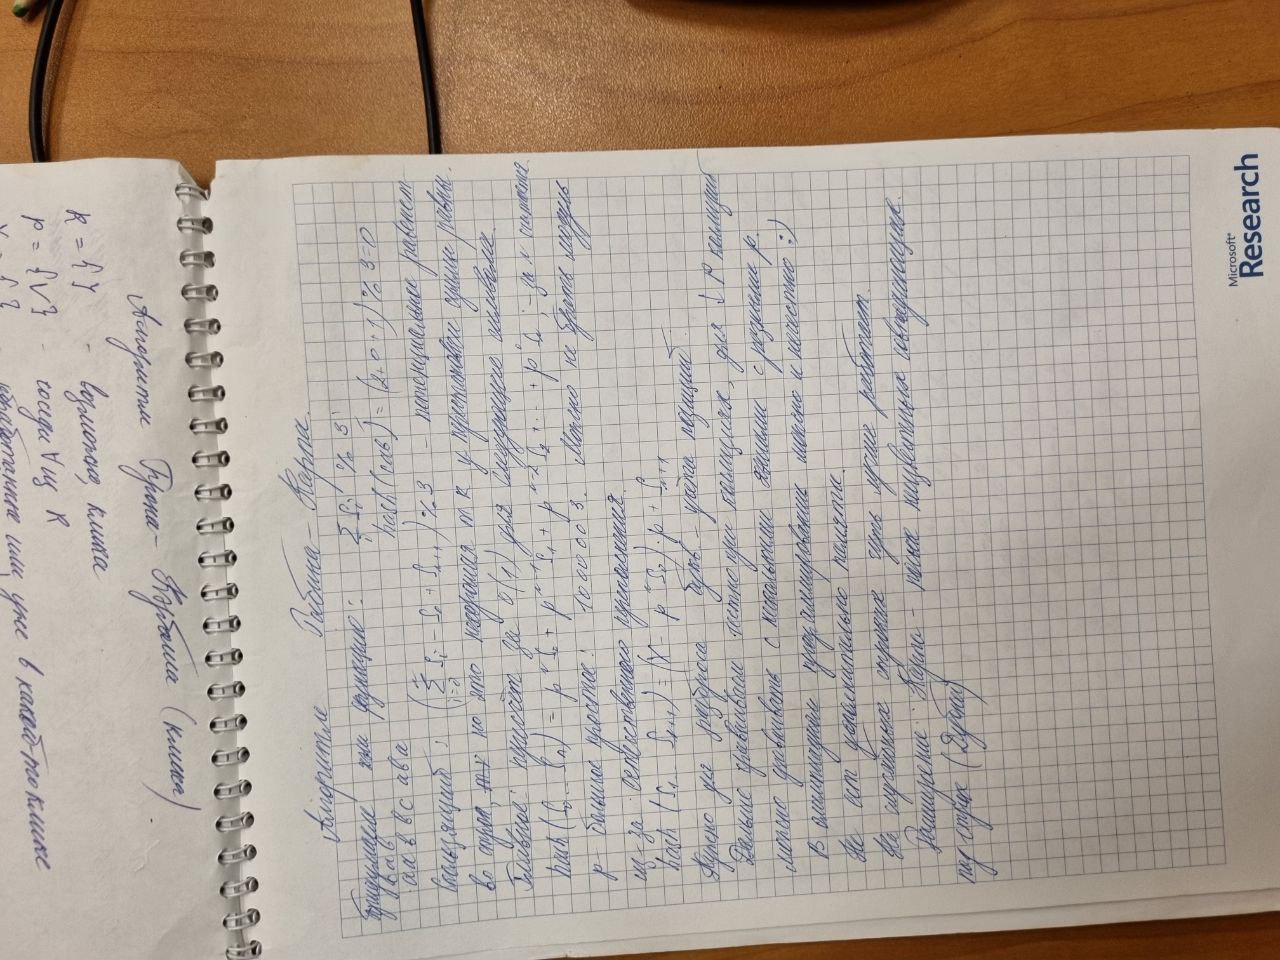 V = { } обработанная или уже в какой-то клике
P = {V} - соседи ∀ из R
R = { } - возможно, клика
Алгоритм Брона - Кербоша (клика)
Алгоритм Рабина - Карпа.
Придумаем хэш функцию: Σ Si % 3
cab hash(cab) = (2+0+1)%3=0
aabbcaba
Скользящий: (Σ Si - S0 + Sn+1)%3 - потенциальное равенст-
во строк, но это нехорошая т к у перестановки суммы равны.
Главное: пересчёт за O(1) для следующего символа.
hash(S0...Sn) = p^n S0 + p^n-1 S1 + p^n-2 S2 + ... + p^0 Sn; - за n считается.
p - большое простое: 1000003. Можно не брать модуль
из-за естественного переполнения.
hash(S1...Sn+1) = (X - p^n S0)·p + Sn+1
Нужно для разброса букв - учёта позиций.
Дальше сравниваем честно при коллизиях, для ↓ P коллизий
можно сравнивать с несколькими хэшами с разными p.
В олимпиадном программировании можно и нечестно :)
Не ест дополнительно памяти.
На случайных строках чуть лучше работает.
Расширение: Карпа - поиск неизвестных совпадающих
подстрок
Microsoft®
Research